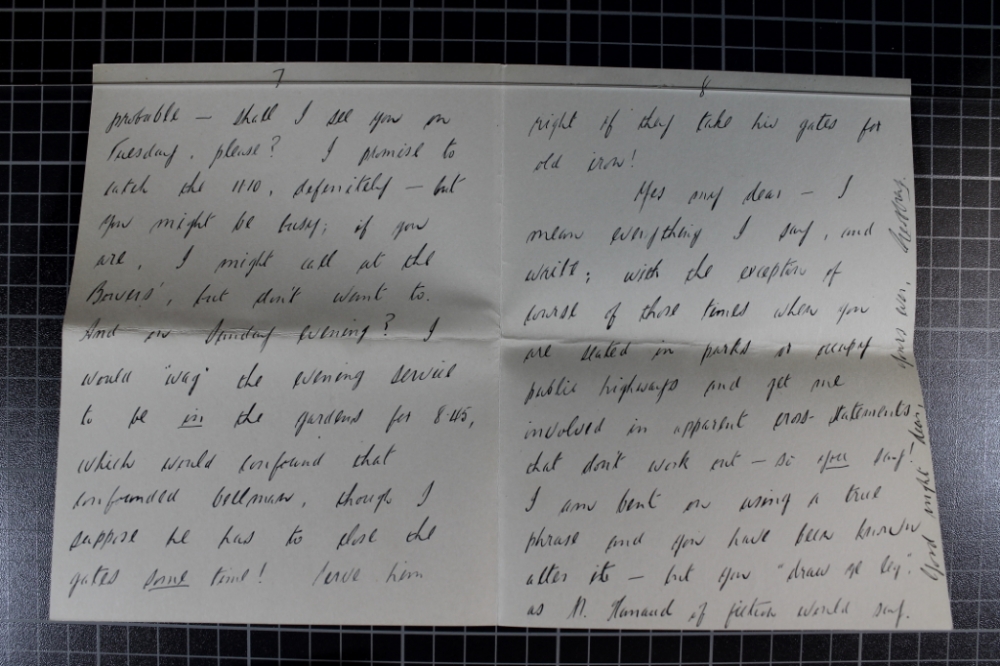 7
probable — shall I see you on
Tuesday, please? I promise to
catch the 11.10, definitely — but
you might be busy; if you
are, I might call at the
Bowers', but don't want to.
And on Sunday evening? I
would "wag" the evening service
to be in the gardens for 8.45,
which would confound that
confounded bellman, though I
suppose he has to close the
gates some time! Serve him
8
right if they take his gates for
old iron!
Yes my dear — I
mean everything I say, and
write; with the exception of
course of those times when you
are seated in parks or occupy
public highways and get me
involved in apparent cross-statements
that don't work out — so you say!
I am bent on using a true
phrase and you have been known
alter it — but you "draw ze leg".
as M. Hanaud of fiction would say.
Good night dear, yours ever,